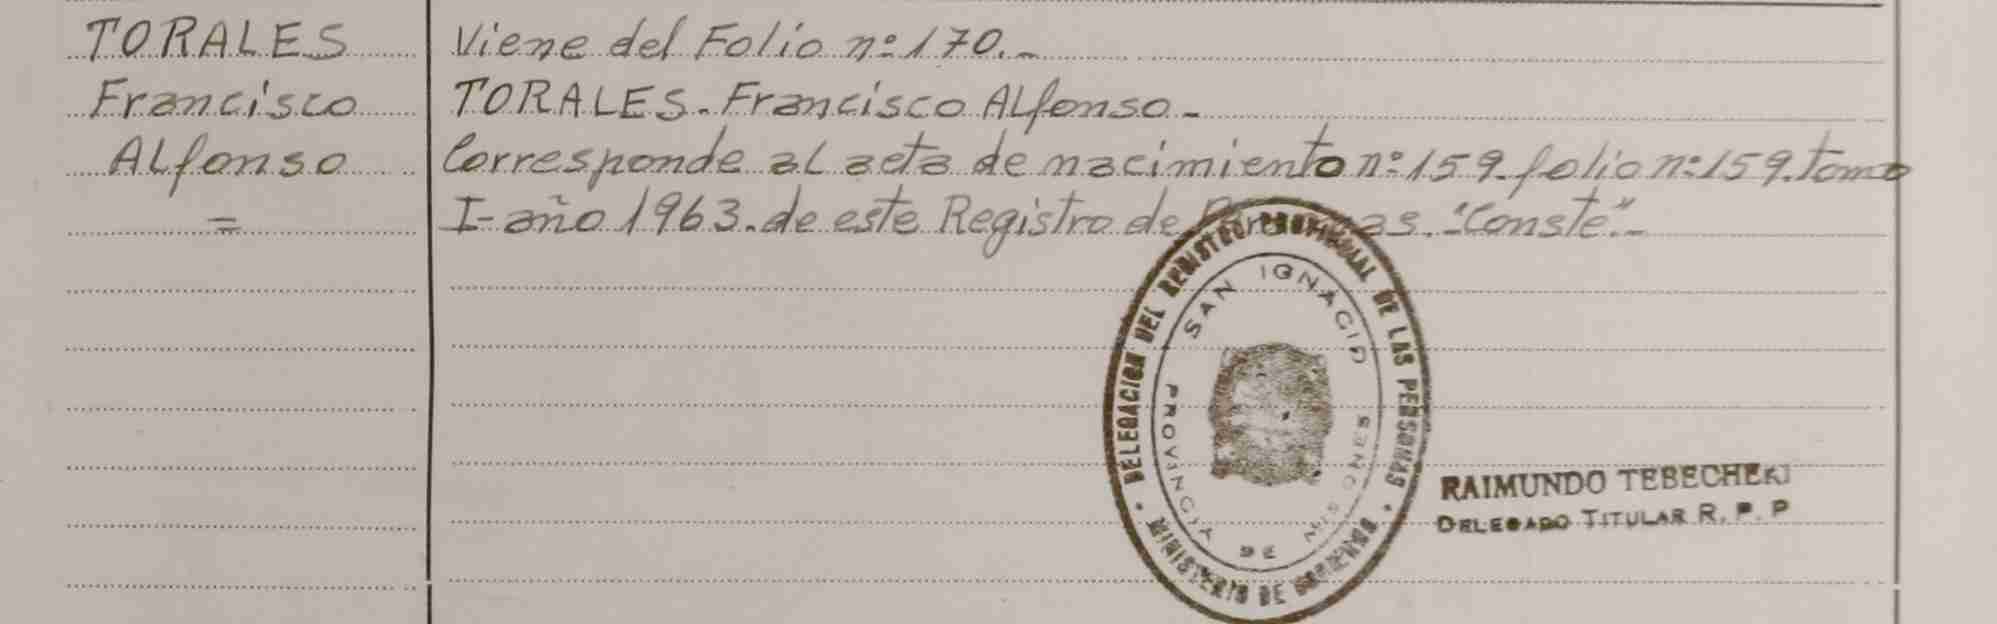 TORALES
Francisco
ALfonso
=
Viene del Folio nº 170.-
TORALES. Francisco ALfonso.-
Corresponde al acta de nacimiento nº 159. folio nº 159. tomo
I- año 1963. de este Registro de Personas. "Conste".-
DELEGACION DEL REGISTRO PROVINCIAL DE LAS PERSONAS
MINISTERIO DE GOBIERNO
SAN IGNACIO
PROVINCIA DE MISIONES
RAIMUNDO TEBECHERI
DELEGADO TITULAR R. P. P